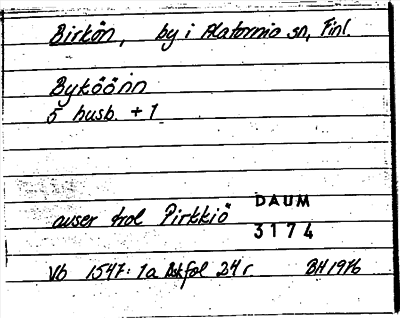 Birkön, by i Alatornio sn, Finl.
Byköönn
5 husb. + 1
DAUM
avser trol Pirkkiö
3174
Vb 1547: 1a Askfol 24 r BH 1976